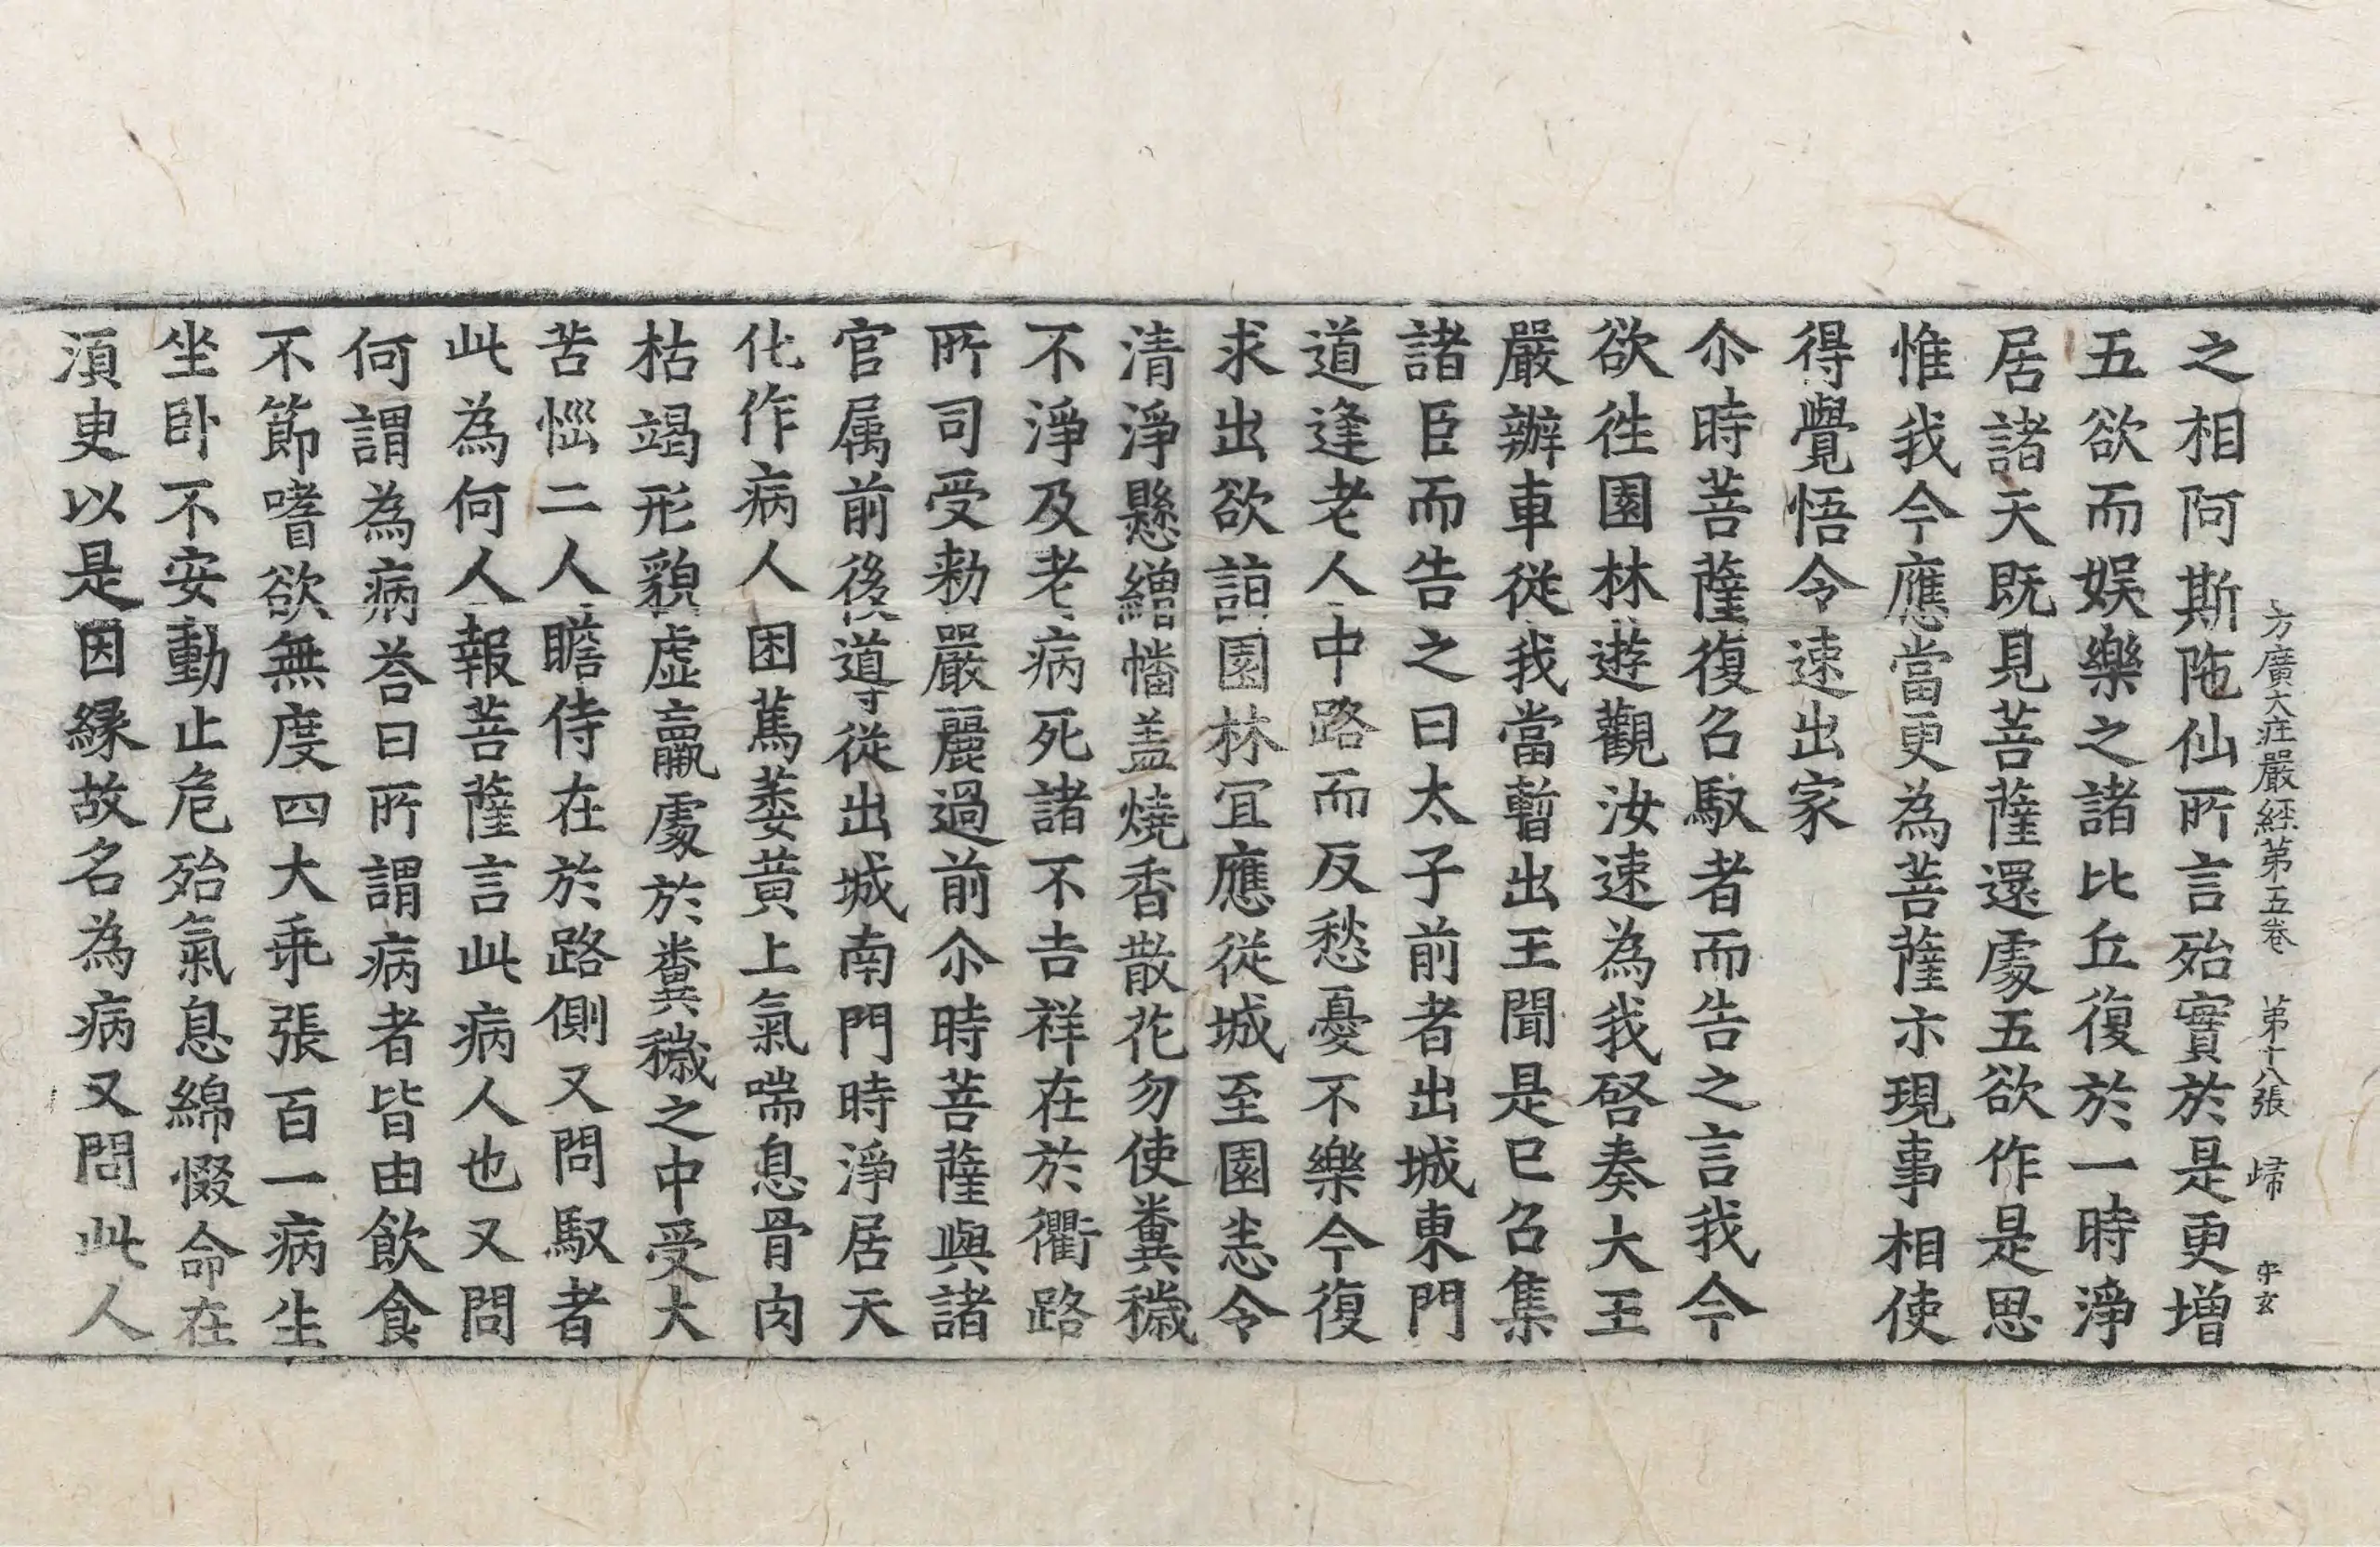 方廣大庄嚴經第五卷 第十八張 歸
之相阿斯陁仙所言殆實於是更增
五欲而娱樂之諸比丘復於一時淨
居諸天既見菩薩還處五欲作是思
惟我今應當更為菩薩示現事相使
得覺悟令速出家
尒時菩薩復召馭者而告之言我今
欲徃園林遊觀汝速為我啓奏大王
嚴辦車從我當暫出王聞是已召集
諸臣而告之曰太子前者出城東門
道逢老人中路而反愁憂不樂今復
求出欲詣園林冝應從城至園悉令
清淨懸繒幡盖燒香散花勿使糞穢
不淨及老病死諸不吉祥在於衢路
所司受勑嚴麗過前尒時菩薩與諸
官属前後導從出城南門時淨居天
化作病人困篤萎黄上氣喘息骨肉
枯竭形貌虚羸處於糞穢之中受大
苦惱二人瞻侍在於路側又問馭者
此為何人報菩薩言此病人也又問
何謂為病荅曰所謂病者皆由飲食
不節嗜欲無度四大乖張百一病生
坐卧不安動止危殆氣息綿惙命在
須臾以是因縁故名為病又問此人